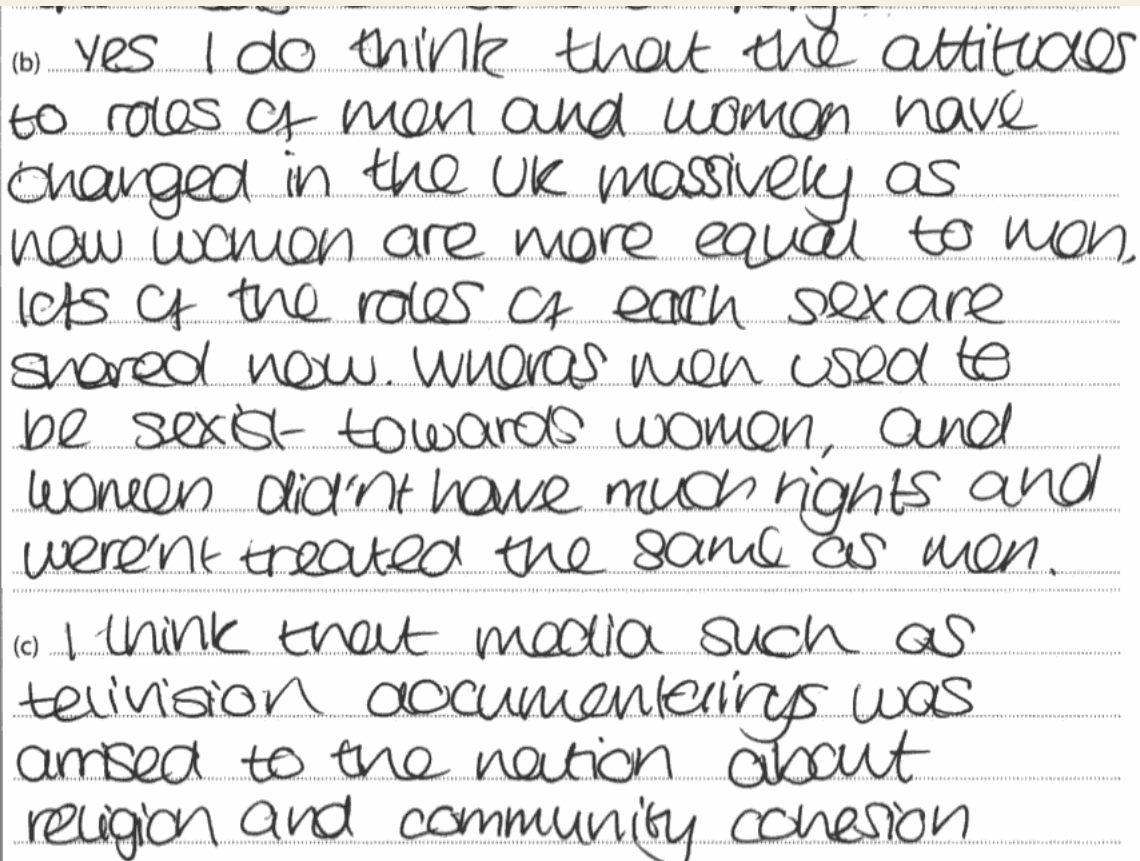 (b) yes I do think that the attitudes
to roles of men and women have
changed in the UK massively as
now women are more equal to men,
lots of the roles of each sex are
shared now. Wheras men used to
be sexist towards women, and
women did'nt have much rights and
were'nt treated the same as men.
(c) I think that media such as
telivision documentairys was
arrised to the nation about
religion and community cohesion